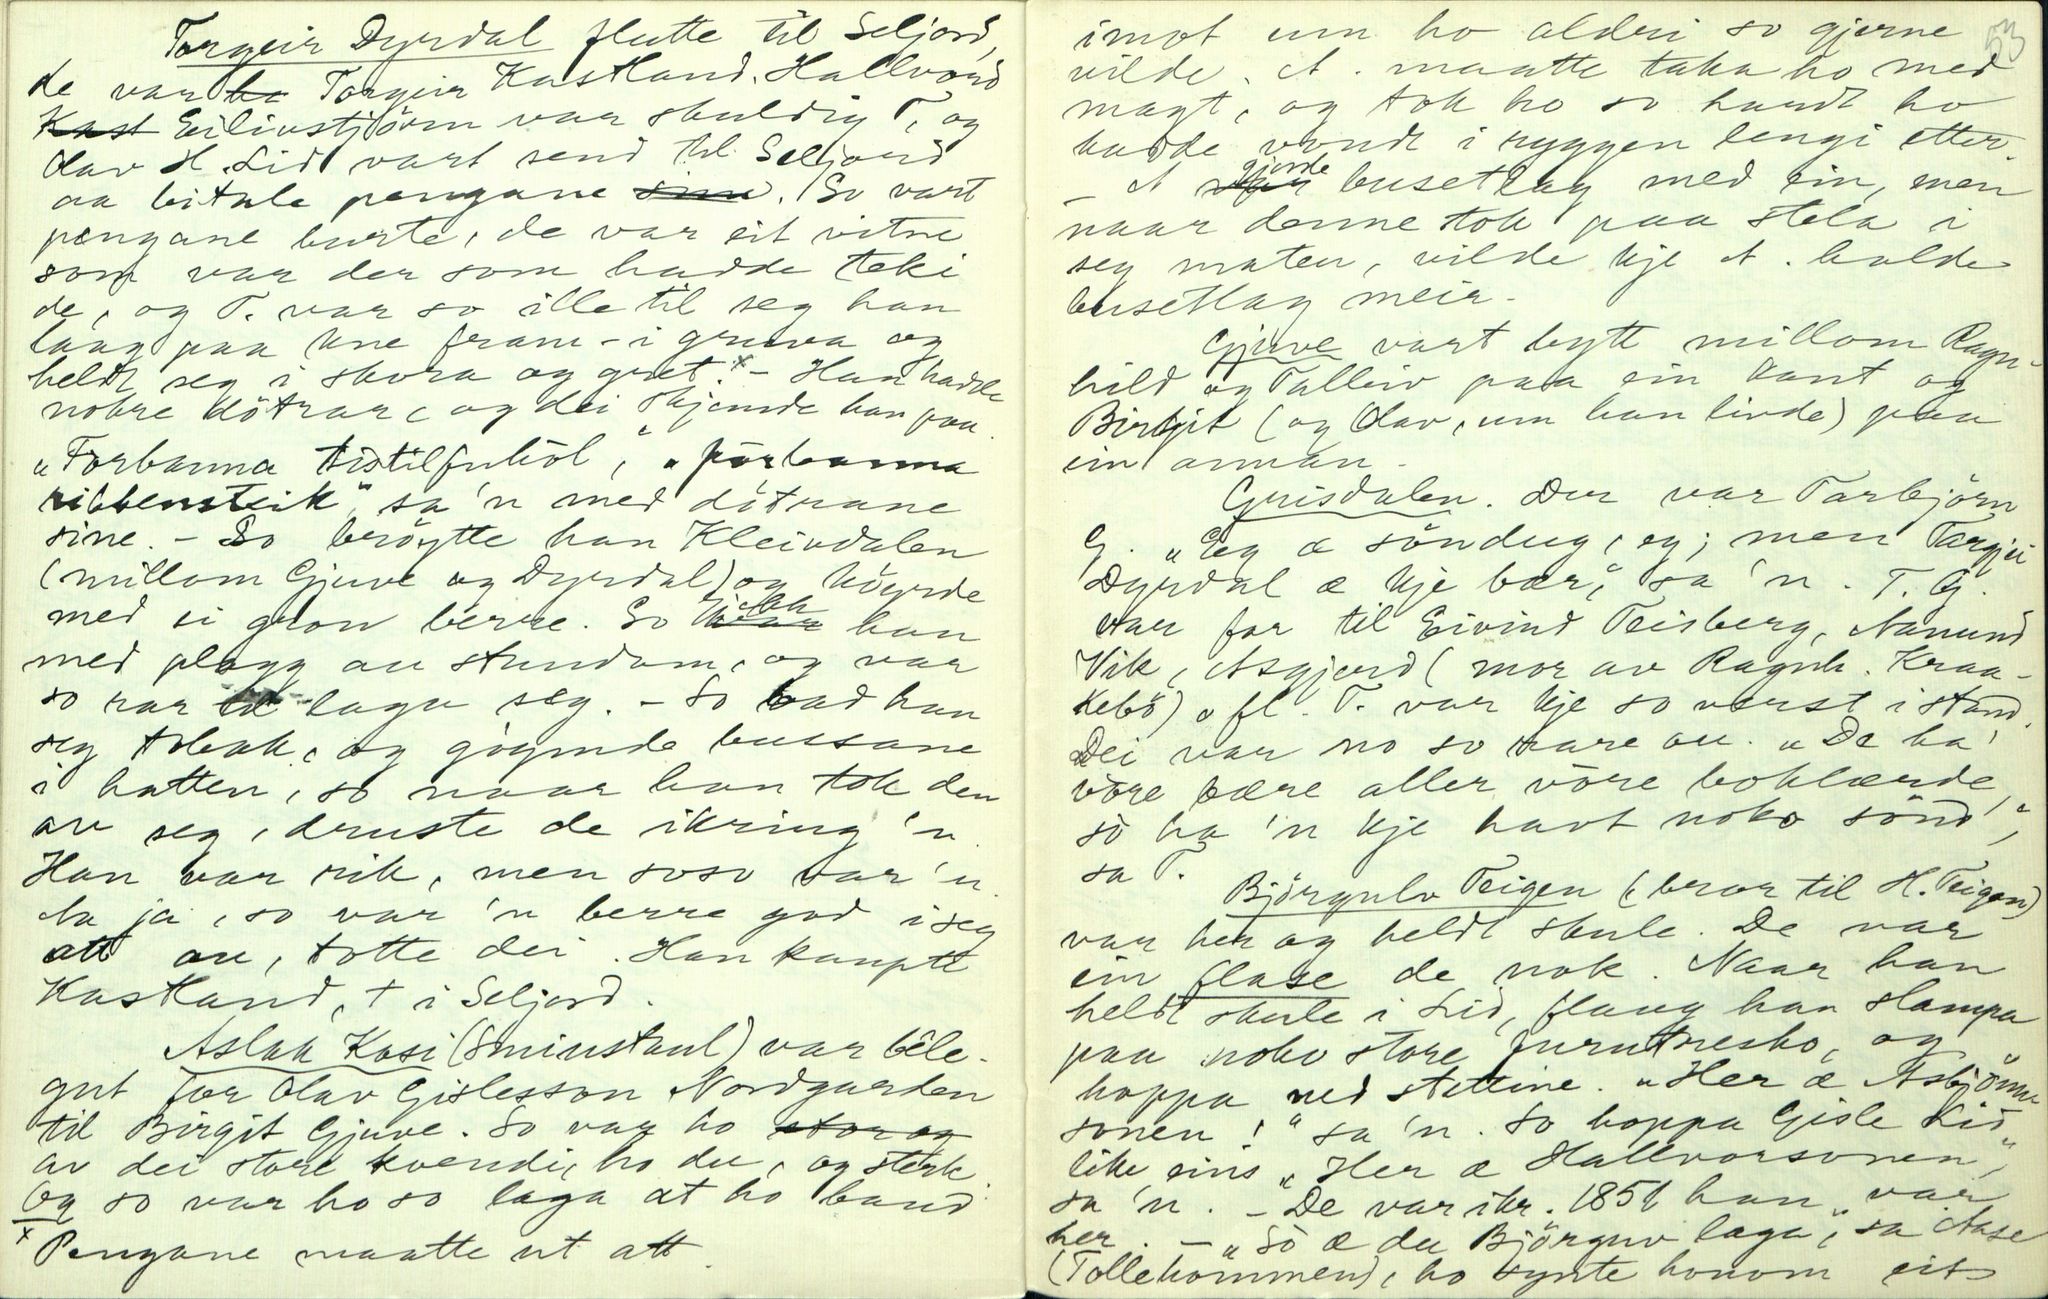 Torgeir Dyrdal flutte til Seljord,
de var ha Torgeir Kastland. Hallvord
Kast Eilivstjörn var skuldig T, og
Olav H. Lid vart send til Seljord
aa bitale pengane sine. So vart
pengane burte, de var eit vitne
som var der som hadde teki
de, og T. var so ille til seg han
laag paa kne fram-i gruva og
heldt seg i skora og gret.x – Han hadde
nokre dötrar, og dei skjemde han paa.
„Forbanna tistilfuhöl", „forbanna
ribbensteik" sa 'n med dötrane
sine. – So bröytte han Kleivdalen
(millom Gjuve og Dyrdal) og köyrde
med ei grov berre. So gjekk han
med plagg au stundom, og var
so rar til laga seg. – So bad han
seg tobak, og göymde bussane
i hatten, so naar han tok den
av seg, druste de ikring 'n.
Han var rik, men soso var 'n.
Aa ja, so var 'n berre god i seg
att au, totte dei. Han kaupte
Kastland, † i Seljord.
Aslak Kasi (Sminstaul) var bêle-
gut for Olav Gislesson Nordgarden
til Birgit Gjuve. So var ho stor og
av dei store kvendi, ho du, og sterk.
Og so var ho so laga at ho band
x Pengane maatte ut att.
53
imot um ho aldri so gjerne
vilde. A. maatte taka ho med
magt, og tok ho so hardt ho
hadde vondt i ryggen lengi etter.
– A gjorde busetlag med ein, men
naar denne tok paa stela i
seg maten, vilde kje A. halde
busetlag meir.
Gjuve vart bytt millom Ragn-
hild og Talleiv paa ein kant og
Birgit (og Olav, um han livde) paa
ein annan.
Grisdalen. Der var Tarbjörn
G. „Eg æ söndug, eg; men Targjei
Dyrdal æ kje bær," sa 'n. T. G.
var far til Eivind Teisberg, Nanund
Vik, Asgjerd (mor av Ragnh. Kraa-
kebö) o fl. T. var kje so verst i stand.
Dei var no so rare au. „De ha'
vöre bære aller vöre boklærde,
sò ha 'n kje havt noko sönd!",
sa T.
Björgulv Teigen (bror til H. Teigen)
var her og heldt skule. De var
ein flase de nok. Naar han
heldt skule i Lid, flaug han slampa
paa noko store furutresko, og
hoppa ned stettine. „Her æ Asbjönn-
sonen!" sa 'n. So hoppa Gisle Lid
like eins „Her æ Hallvorsonen",
sa 'n. – De var ikr. 1851 han var
her. – „Sò æ du Björguv laga", sa Aase
(Tollehommen), ho synte honom eit